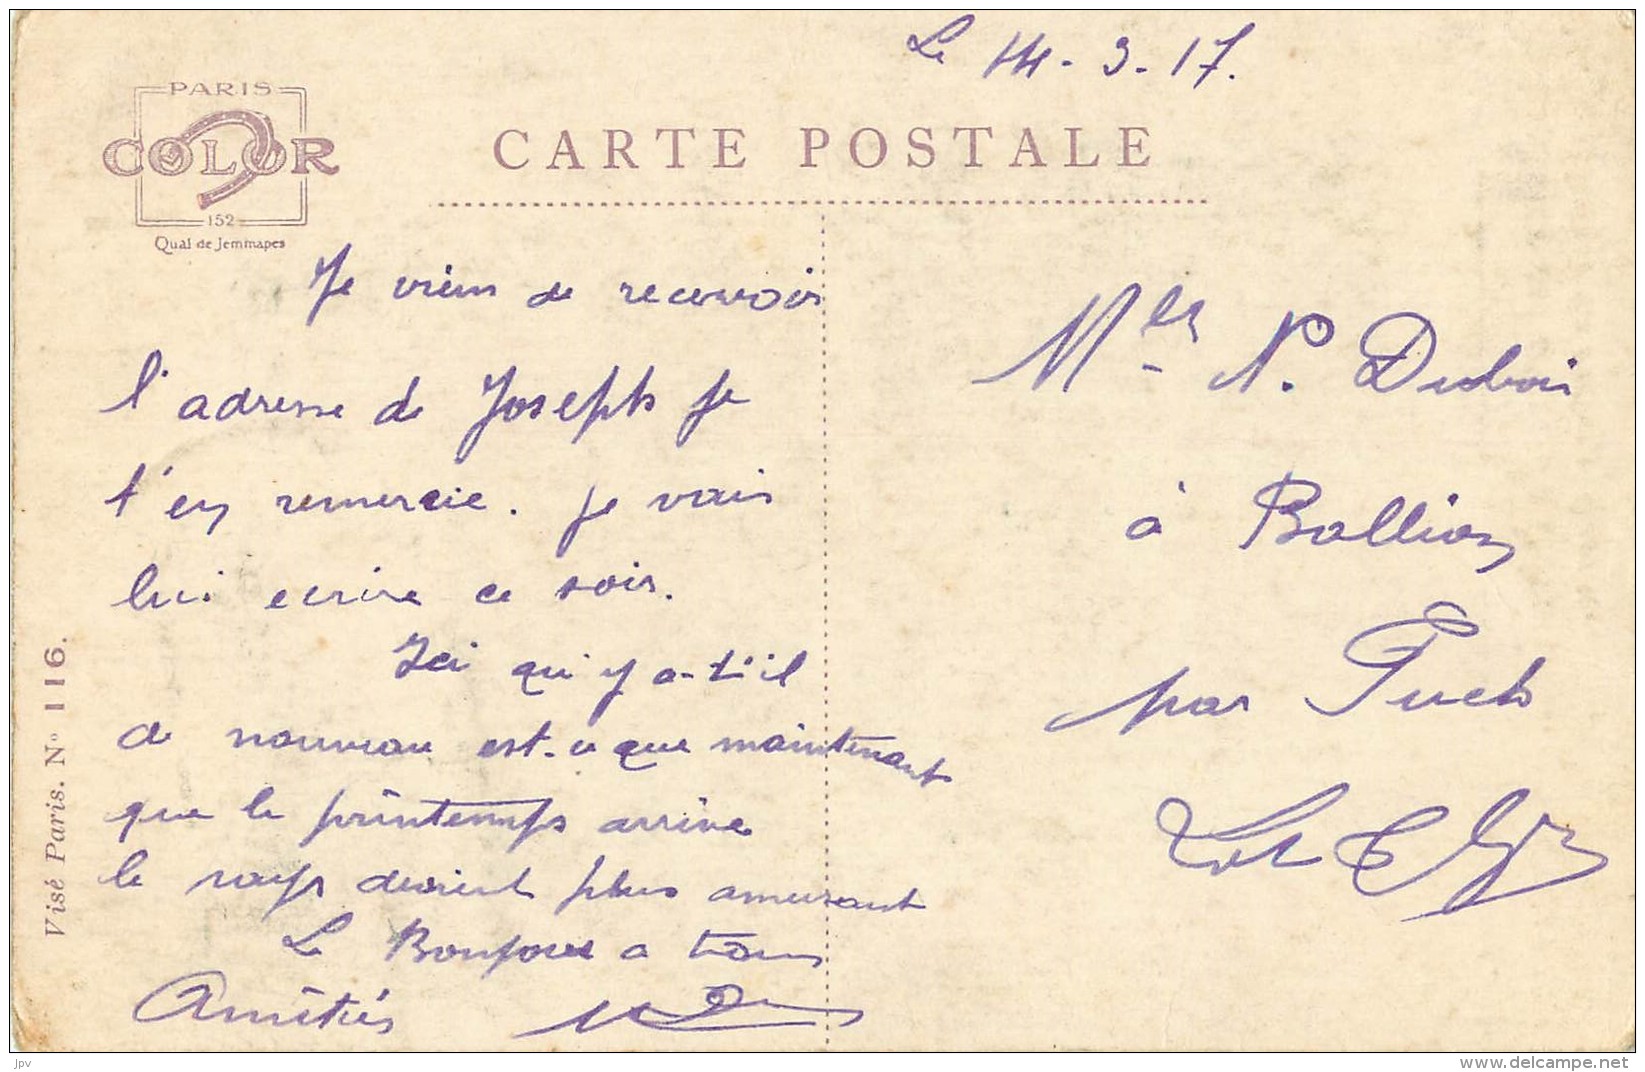 Le 14-3-17.
PARIS
COLOR
152
Quai de Jemmapes
CARTE POSTALE
Je viens de recevoir
l'adresse de Joseph je
t'en remercie. je vais
lui ecrire ce soir.
Ici qu'y a-t'il
de nouveau est-ce que maintenant
que le printemps arrive
le pays devient plus amusant
Le Bonjour a tous
Amitiés
Melle N. Dubois
à Ballion
par Puch
Lot & Gne
Visé Paris. No 116.
jpv
www.delcampe.net